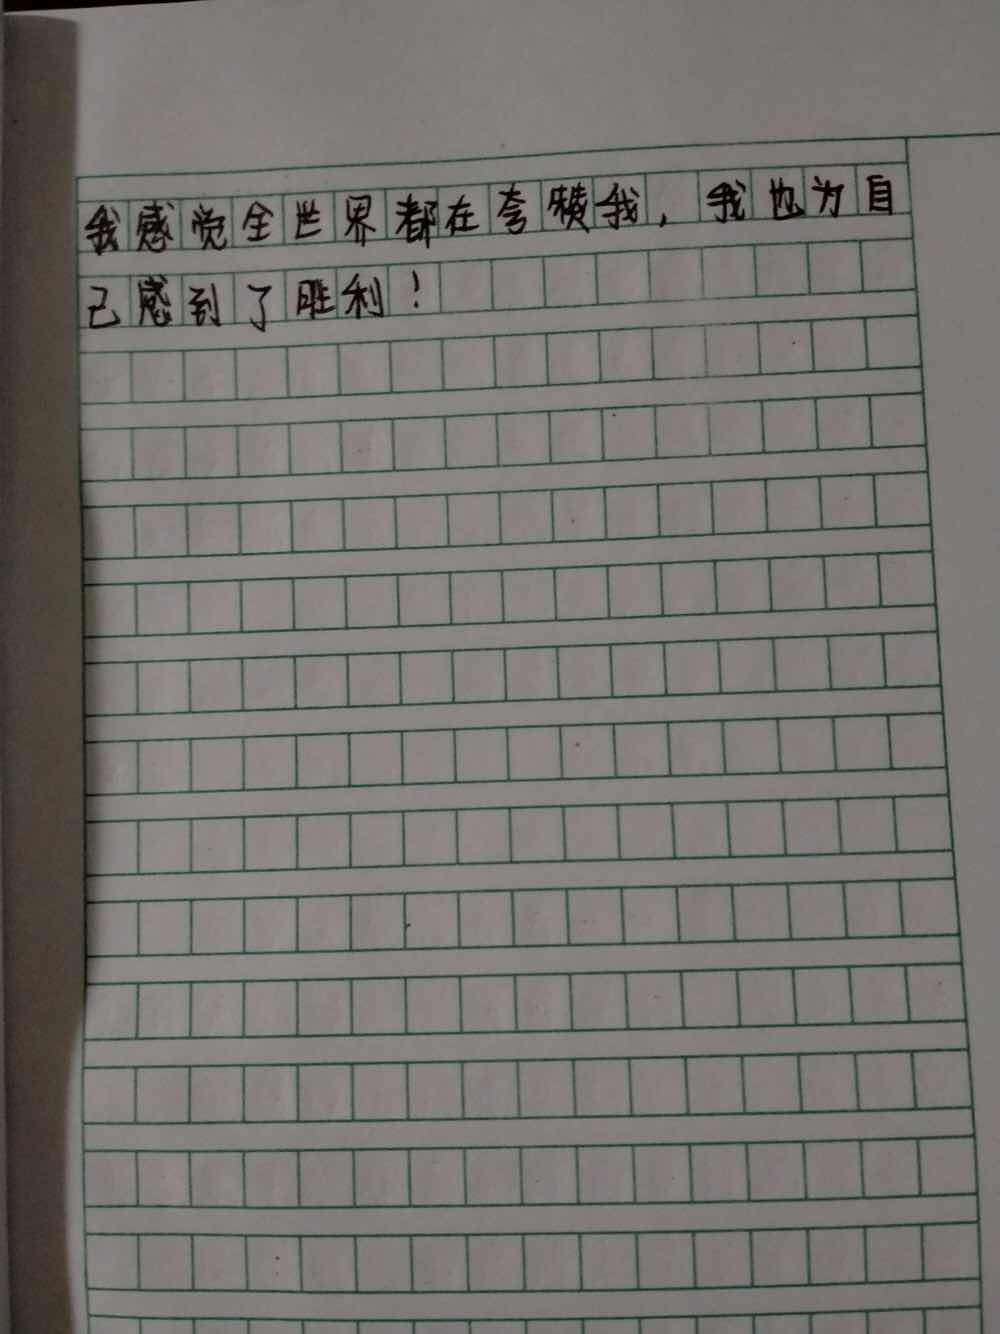 我感觉全世界都在夸赞我，我也为自
己感到了胜利！